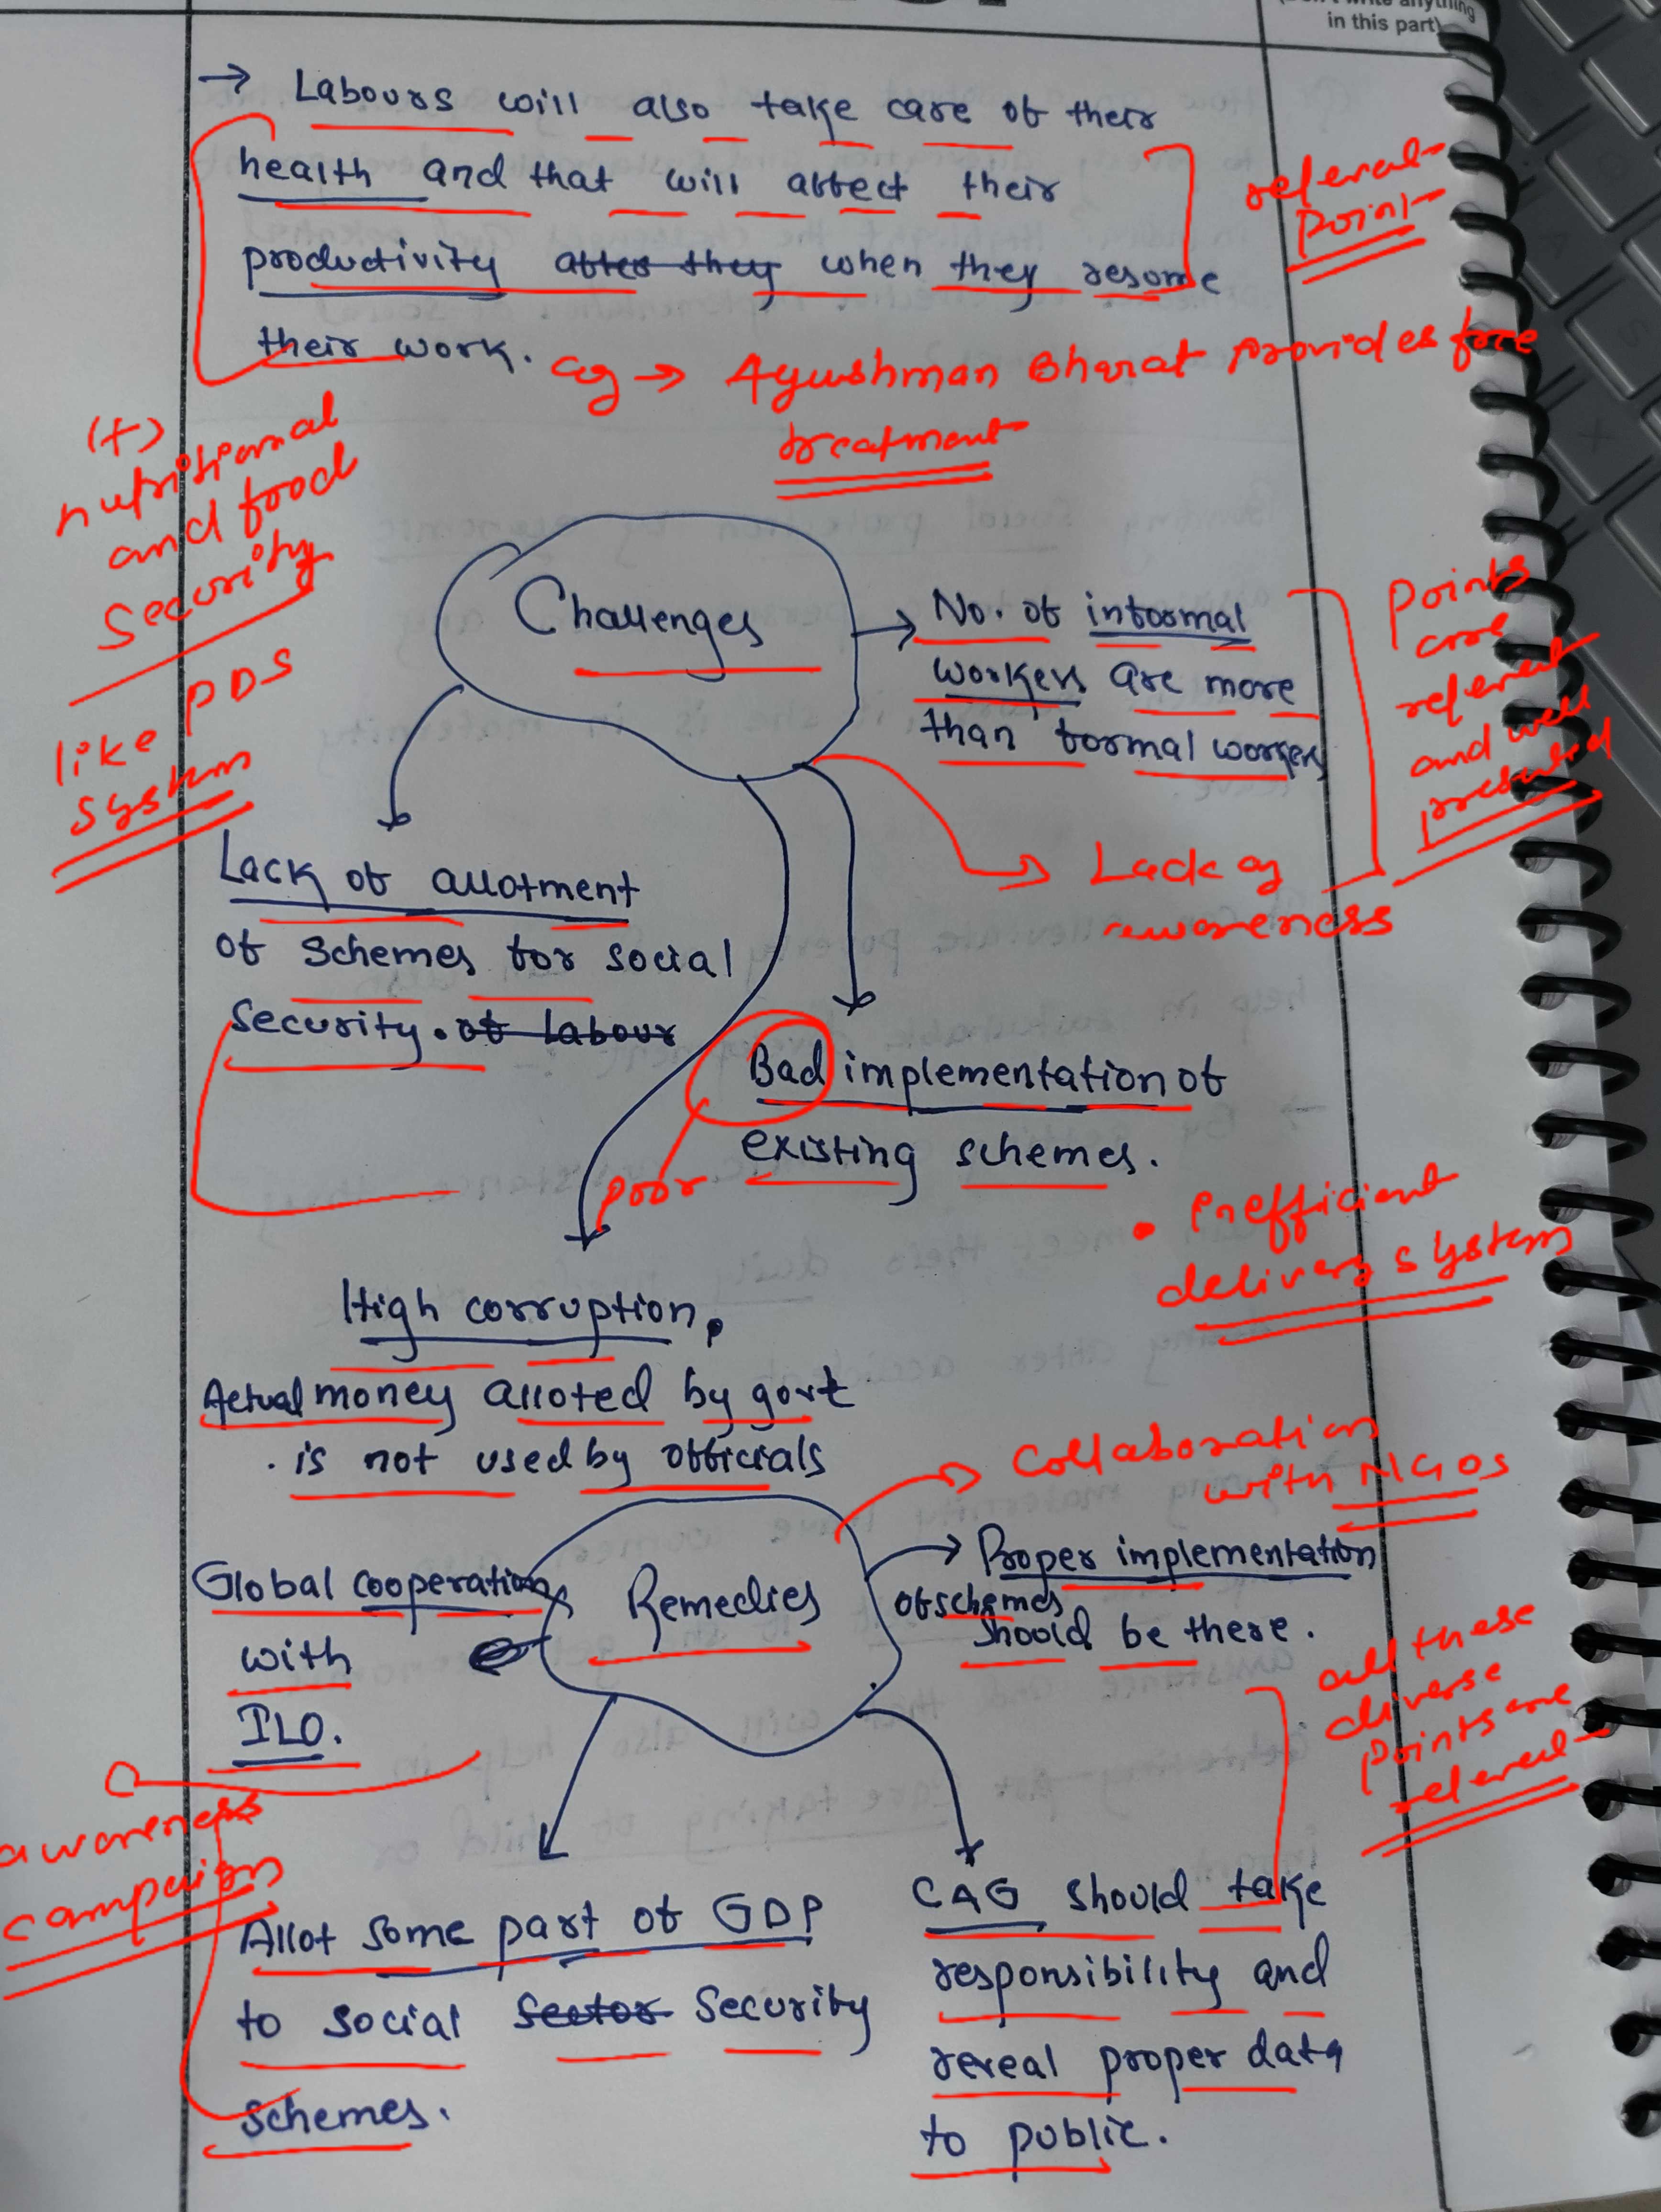 in this part)
→ Labours will also take care of their
health and that will affect their
productivity after they when they resome
their work.
eg → Ayushman Bharat provides free
treatment
referent
point
(+)
nutritional
and food
security
like PDS
system
Challenges
→ No. of informal
workers are more
than formal workers
Points
are
referent
and well
presented
Lack of
awareness
Lack of allotment
of schemes for social
security. of labour
Bad implementation of
existing schemes.
poor
• Inefficient
delivery system
High corruption,
Actual money alloted by govt
is not used by officials
Collaboration
with NGOs
Remedies
→ Proper implementation
of schemes
should be there.
Global cooperation
with
ILO.
all these
diverse
points are
referent
awareness
campaign
Allot some part of GDP
to social sector security
schemes.
CAG should take
responsibility and
reveal proper data
to public.